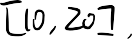 [10, 20],